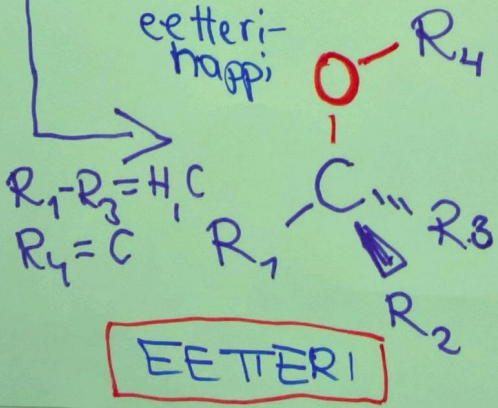 eetteri-
happi
O R₄
R₁-R₃=H,C
R₄=C
C
R₁ R₃
R₂
EETTERI